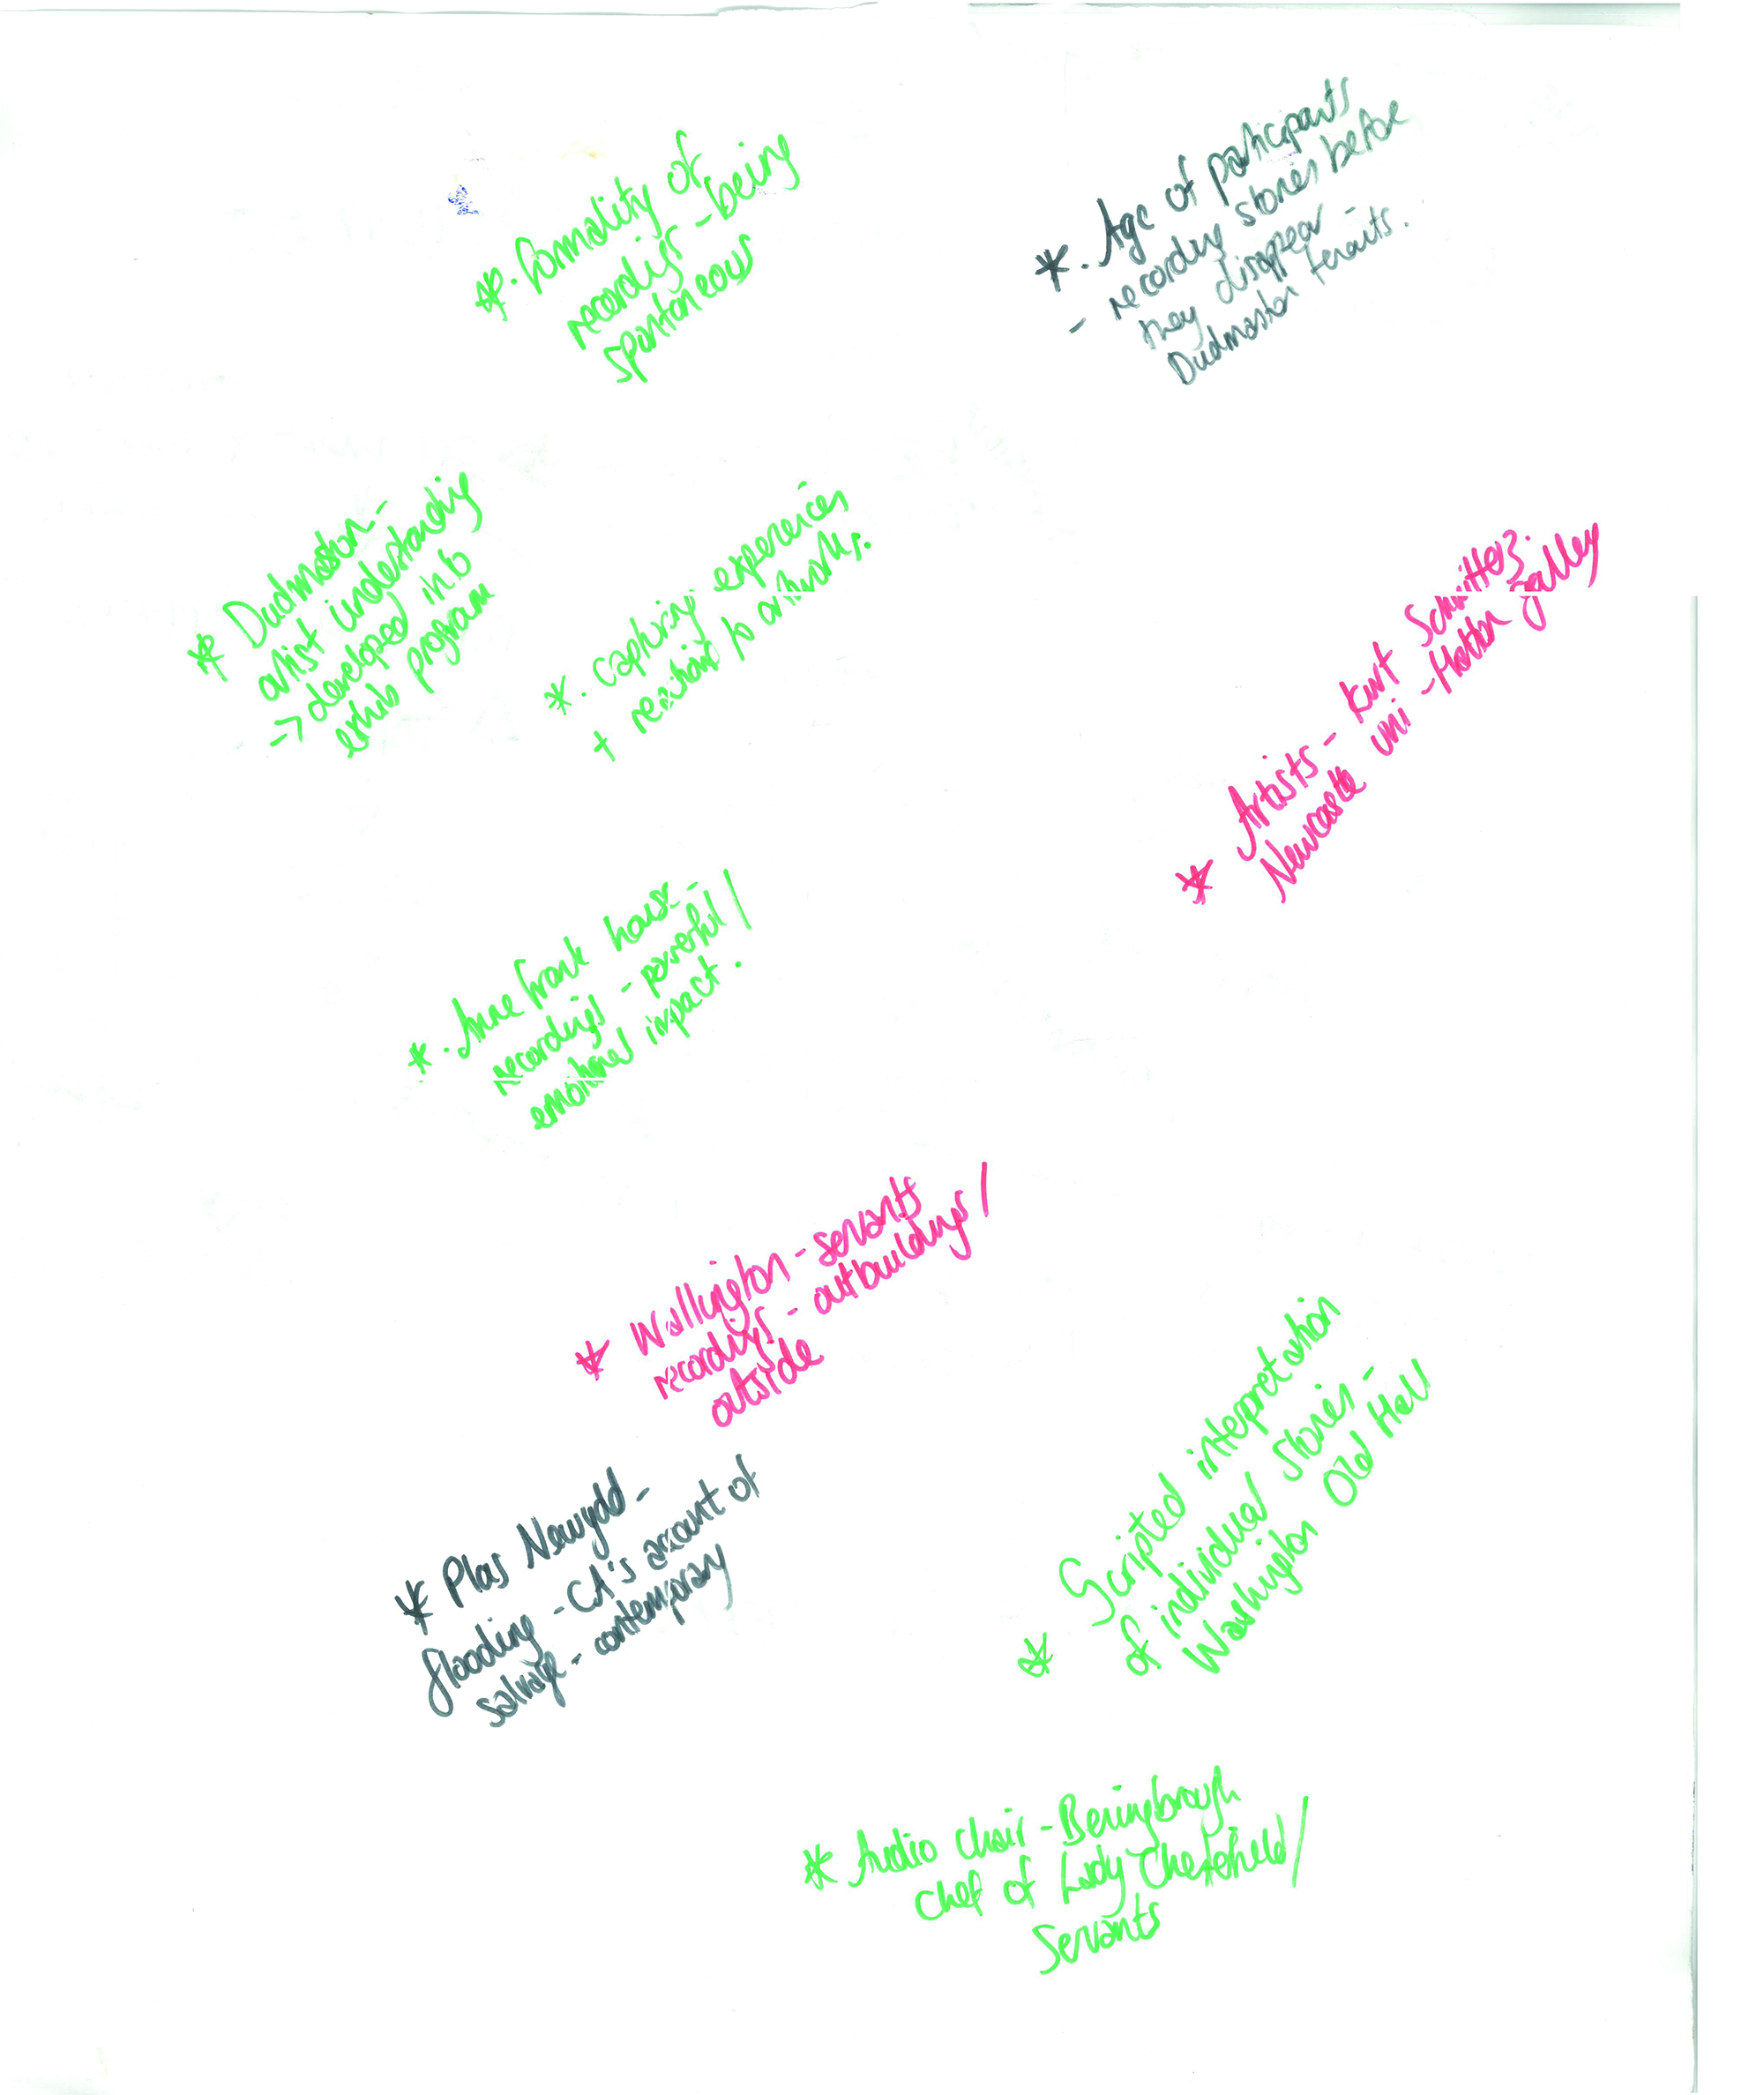 *. Formality of
recordings - being
spontaneous
*. Age of participants
- recording stories before
they disappear -
Dudmaston tenants.
* Dudmaston -
artist understanding
→ developed into
exhib program
*. capturing experiences
+ reactions to artworks.
* Artists - Kurt Schwitters.
Newcastle uni - Hatton galley
*. Anne Frank house -
recordings - powerful /
emotional impact.
* Wallington - servants
recordings - outbuildings /
outside
* Plas Newydd -
flooding - CA's account of
salvage - contemporary
* Scripted interpretation
of individual stories -
Washington Old Hall
* Audio chair - Beningbrough
Chef of Lady Chesterfield /
Servants